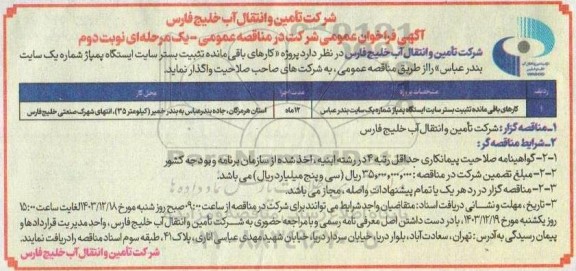 شرکت تأمین و انتقال آب خلیج فارس
آگهی فراخوان عمومی شرکت در مناقصه عمومی - یک مرحله ای نوبت دوم
شرکت تأمین و انتقال آب خلیج فارس در نظر دارد پروژه «کارهای باقی مانده تثبیت بستر سایت ایستگاه پمپاژ شماره یک سایت
بندر عباس» را از طریق مناقصه عمومی، به شرکت های صاحب صلاحیت واگذار نماید.
ردیف مشخصات پروژه مدت اجرا محل کار
۱ کارهای باقی مانده تثبیت بستر سایت ایستگاه پمپاژ شماره یک سایت بندر عباس ۱۲ ماه استان هرمزگان، جاده بندرعباس به بندر خمیر (کیلومتر ۳۵)، انتهای شهرک صنعتی خلیج فارس
۱- مناقصه گزار: شرکت تأمین و انتقال آب خلیج فارس
۲- شرایط مناقصه گر:
۲-۱- گواهینامه صلاحیت پیمانکاری حداقل رتبه ۴ در رشته ابنیه، اخذ شده از سازمان برنامه و بودجه کشور
۲-۲- مبلغ تضمین شرکت در مناقصه: ۳۵,۰۰۰,۰۰۰,۰۰۰ ریال (سی و پنج میلیارد ریال) می باشد.
۲-۳- مناقصه گزار در رد هر یک یا تمام پیشنهادات واصله، مجاز می باشد.
۳- تاریخ، مهلت و نشانی دریافت اسناد: متقاضیان واجد شرایط می توانند برای شرکت در مناقصه از ساعت ۹:۰۰ صبح روز شنبه مورخ ۱۴۰۳/۱۲/۱۸ لغایت ساعت ۱۵:۰۰
روز یکشنبه مورخ ۱۴۰۳/۱۲/۱۹، با در دست داشتن اصل معرفی نامه رسمی و با مراجعه حضوری به شرکت تأمین و انتقال آب خلیج فارس، واحد مدیریت قراردادها و
پیمان رسیدگی به آدرس: تهران، سعادت آباد، بلوار دریا، خیابان سردار دریا، خیابان شهید مهدی عباسی اناری، پلاک ۴۱، طبقه سوم اسناد مناقصه را دریافت نمایند.
شرکت تأمین و انتقال آب خلیج فارس